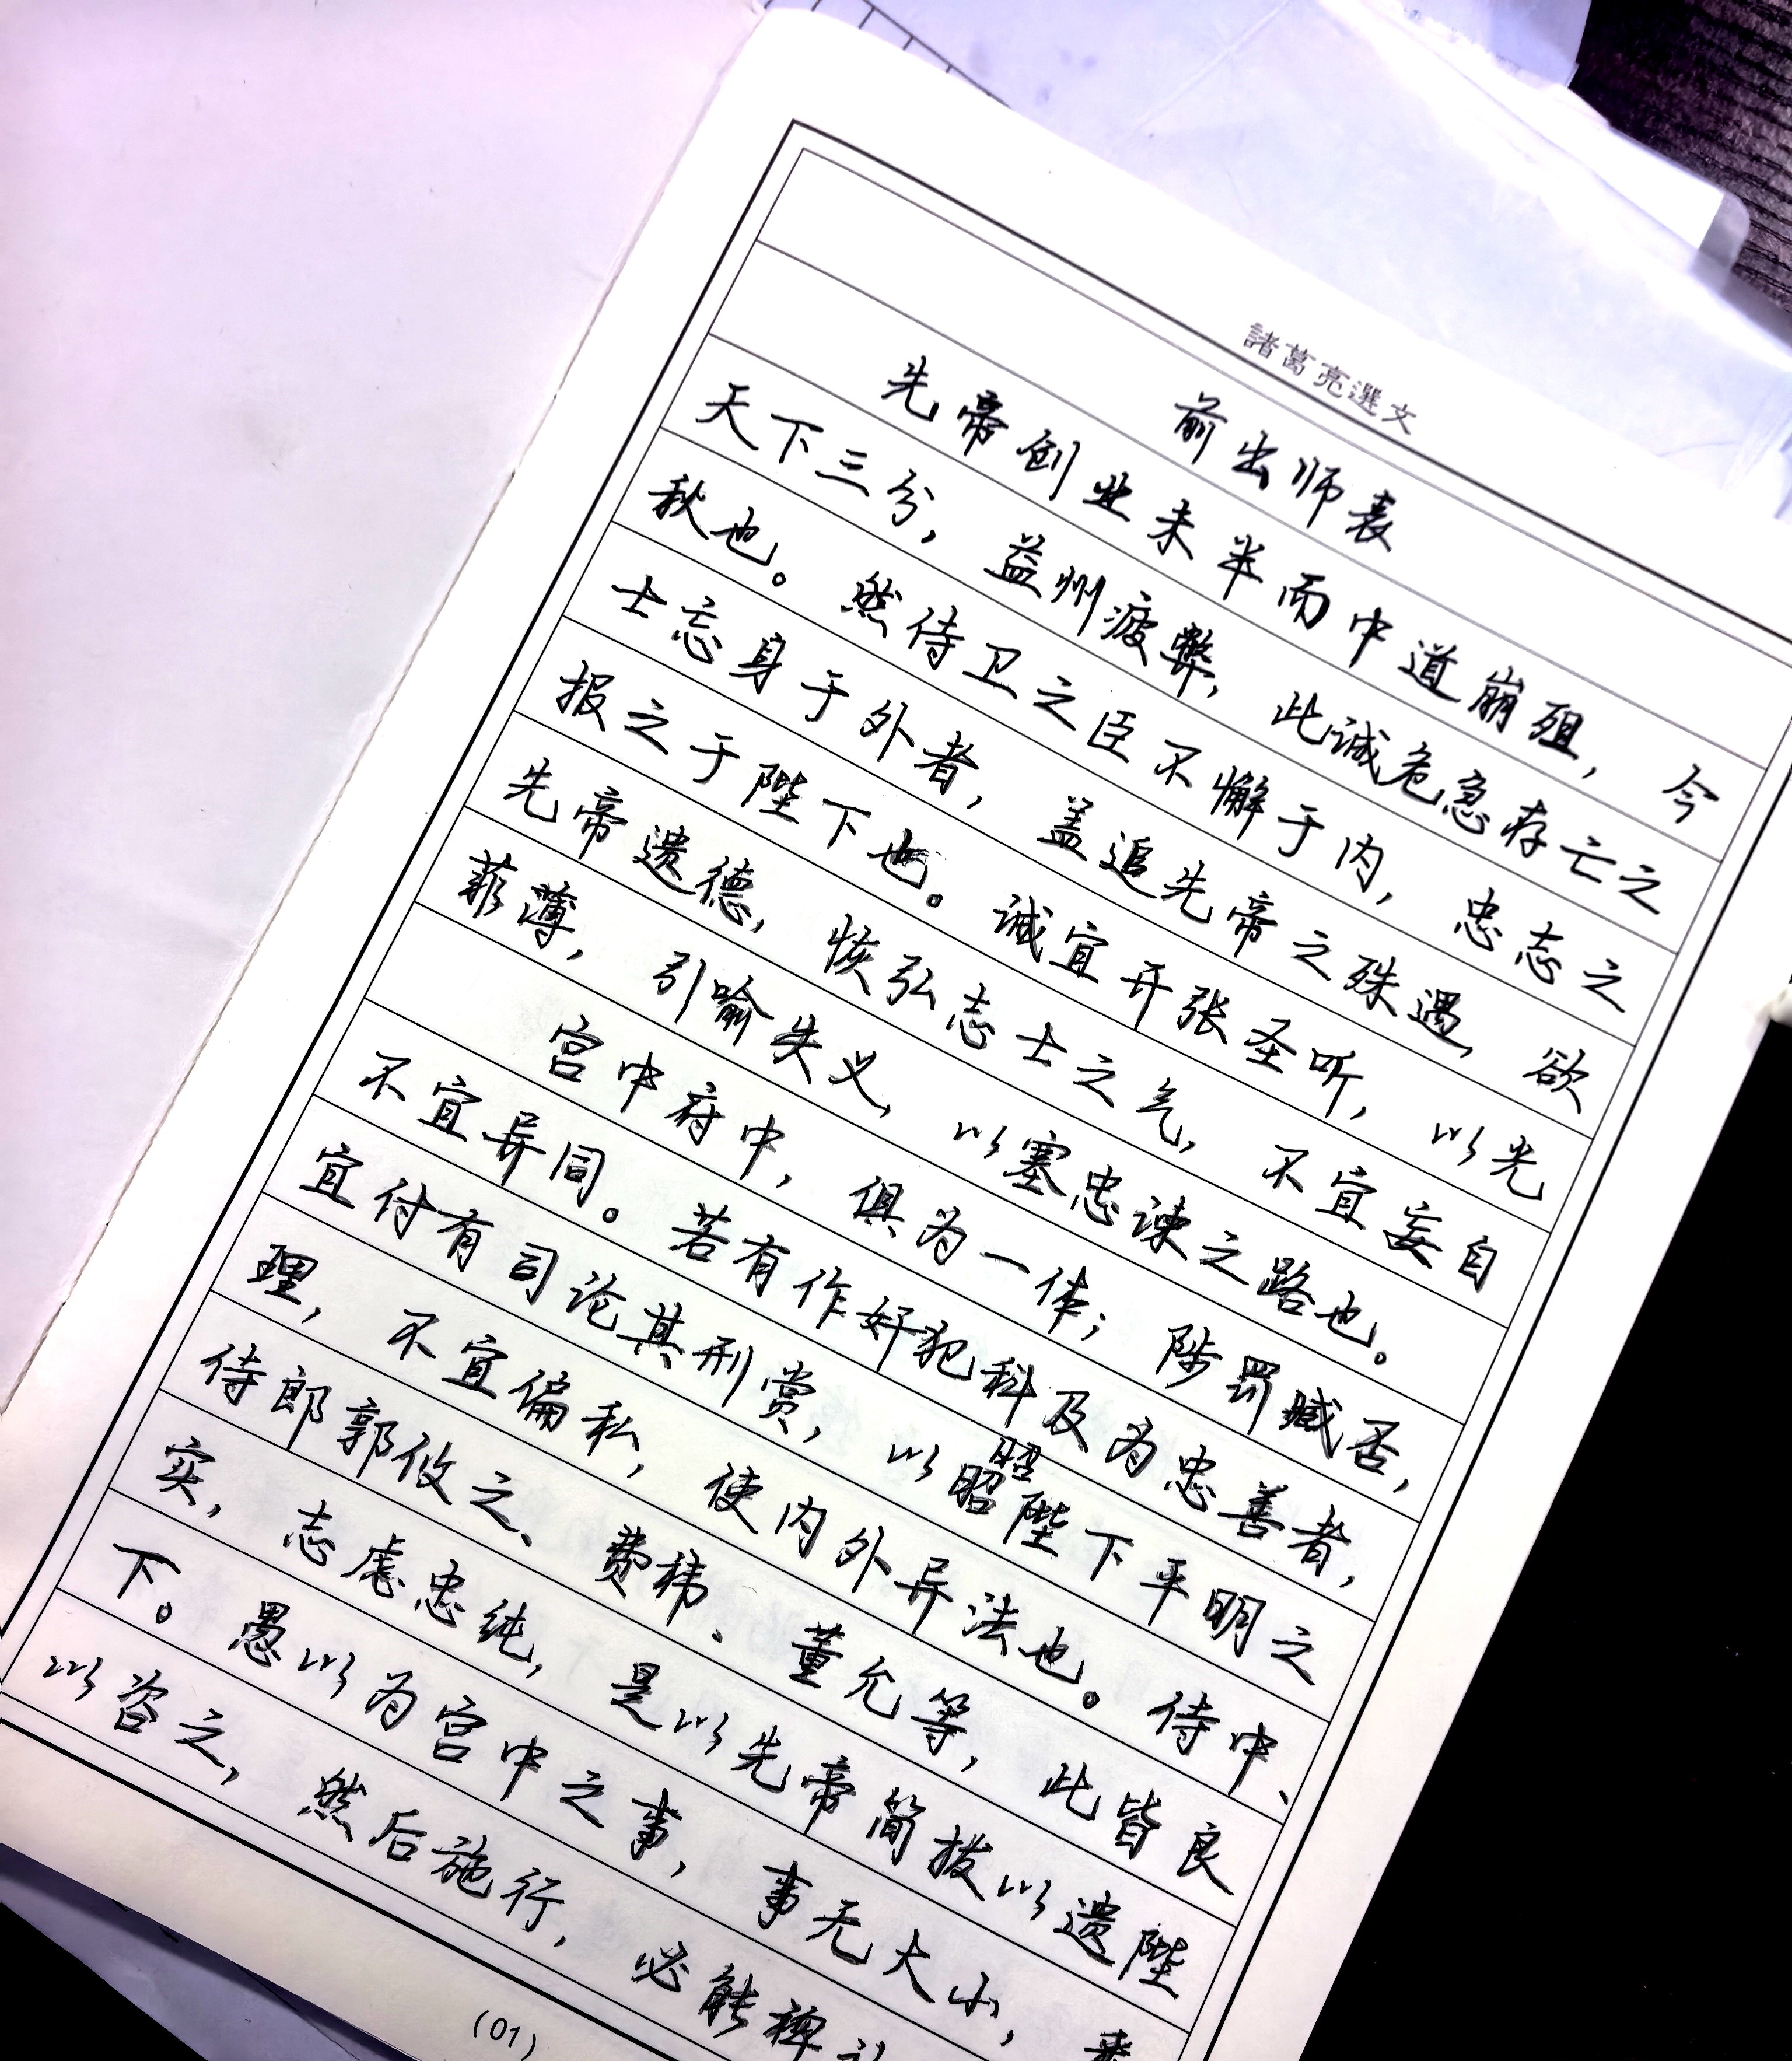 諸葛亮選文
前出师表
先帝创业未半而中道崩殂，今
天下三分，益州疲弊，此诚危急存亡之
秋也。然侍卫之臣不懈于内，忠志之
士忘身于外者，盖追先帝之殊遇，欲
报之于陛下也。诚宜开张圣听，以光
先帝遗德，恢弘志士之气，不宜妄自
菲薄，引喻失义，以塞忠谏之路也。
宫中府中，俱为一体；陟罚臧否，
不宜异同。若有作奸犯科及为忠善者，
昭
宜付有司论其刑赏，以昭陛下平明之
理，不宜偏私，使内外异法也。侍中、
侍郎郭攸之、费祎、董允等，此皆良
实，志虑忠纯，是以先帝简拔以遗陛
下。愚以为宫中之事，事无大小，
以咨之，然后施行，必能裨
(01)